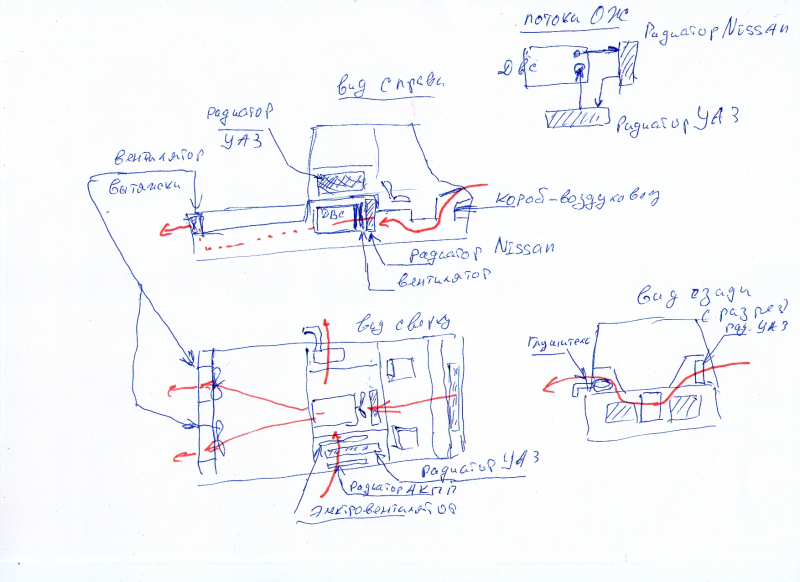 потока ОЖ
Радиатор Nissan
ДВС
Радиатор УАЗ
вид справа
Радиатор
УАЗ
вентилятор
вытяжки
ДВС
короб-воздуховод
радиатор Nissan
вентилятор
вид сзади
с разрез
рад. УАЗ
Глушитель
вид сверху
Радиатор УАЗ
Радиатор АКПП
Электровентилятор